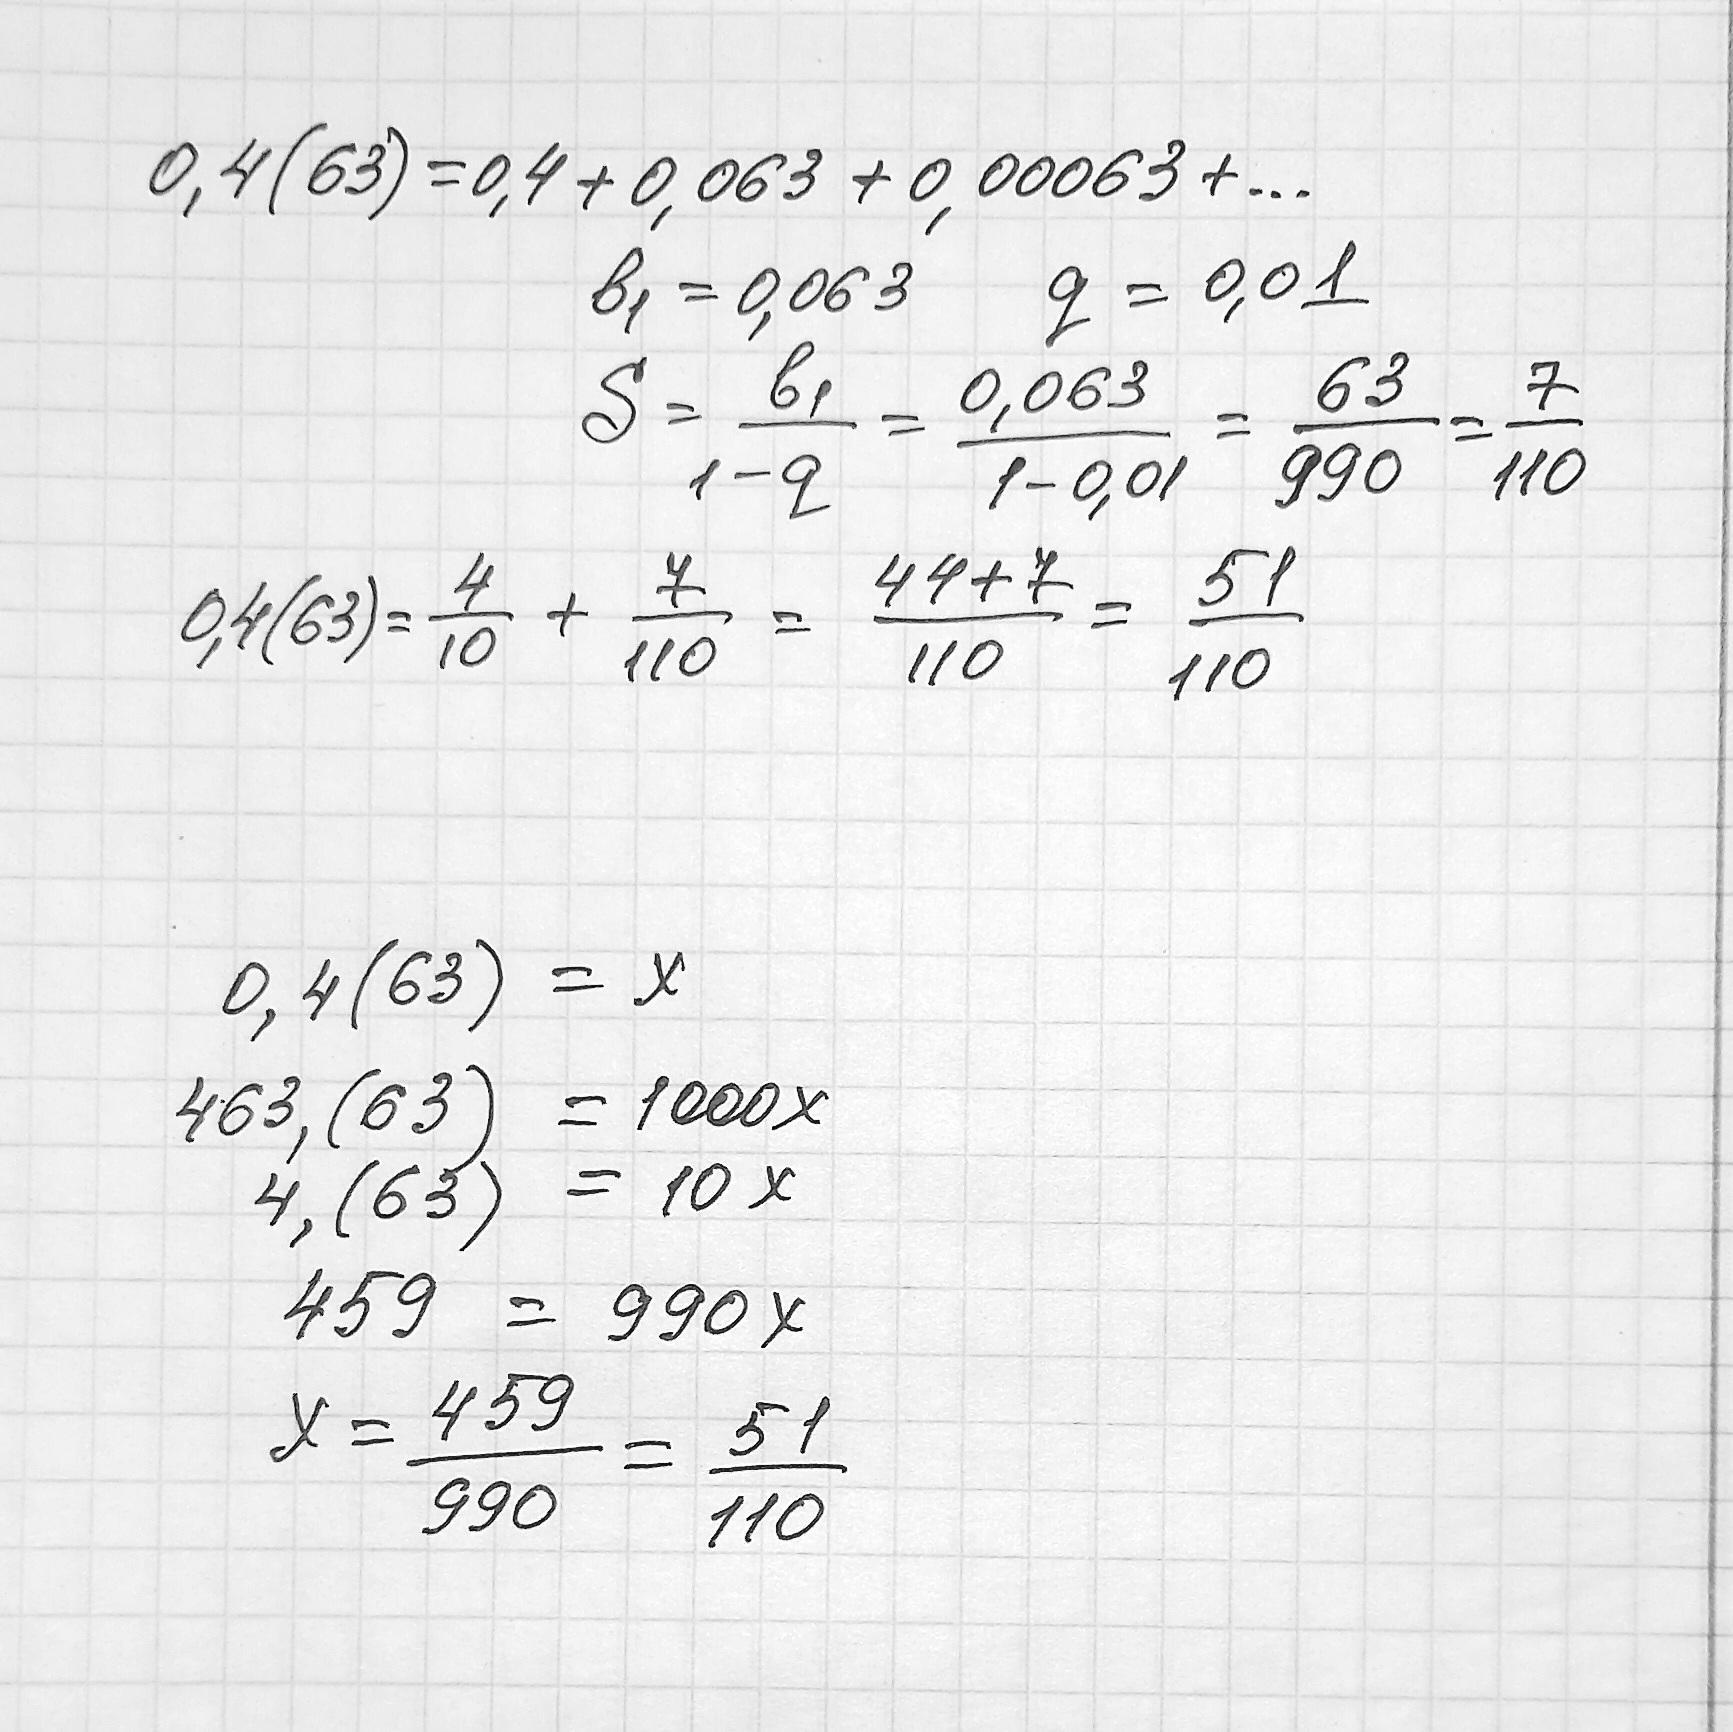 0,4(63)=0,4+0,063+0,00063+...
b₁=0,063 q=0,01
S=b₁/(1-q)=0,063/(1-0,01)=63/990=7/110
0,4(63)=4/10+7/110=(44+7)/110=51/110
0,4(63)=x
463,(63)=1000x
4,(63)=10x
459=990x
x=459/990=51/110